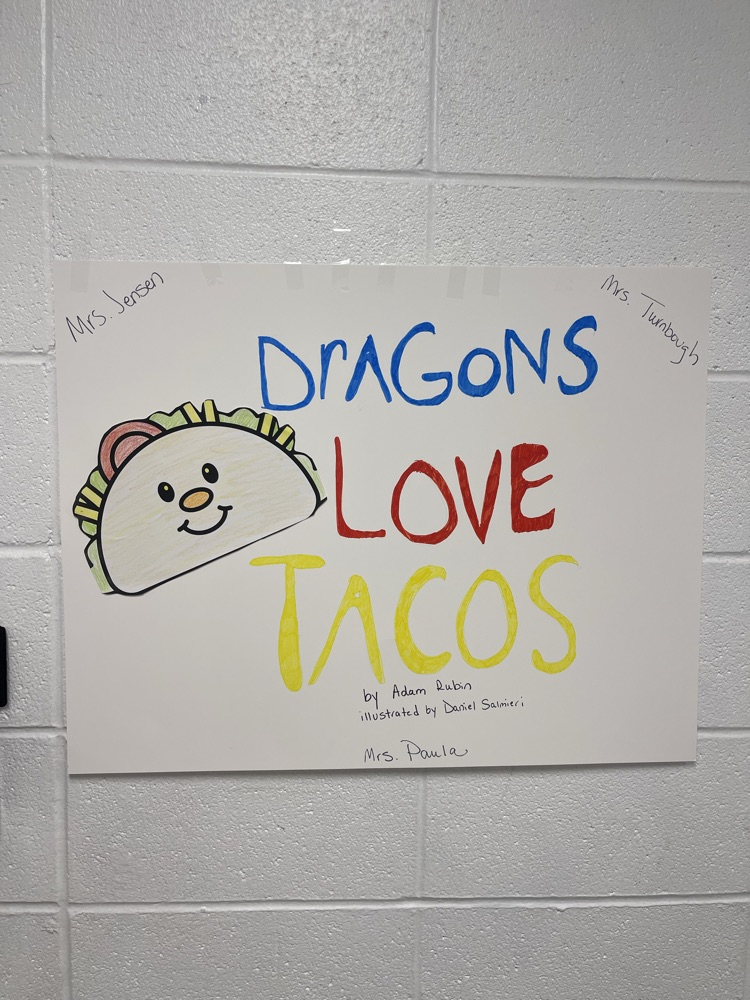 Mrs. Jensen
Mrs. Turnbough
DrAGONS
LOVE
TACOS
by Adam Rubin
illustrated by Daniel Salmieri
Mrs. Paula